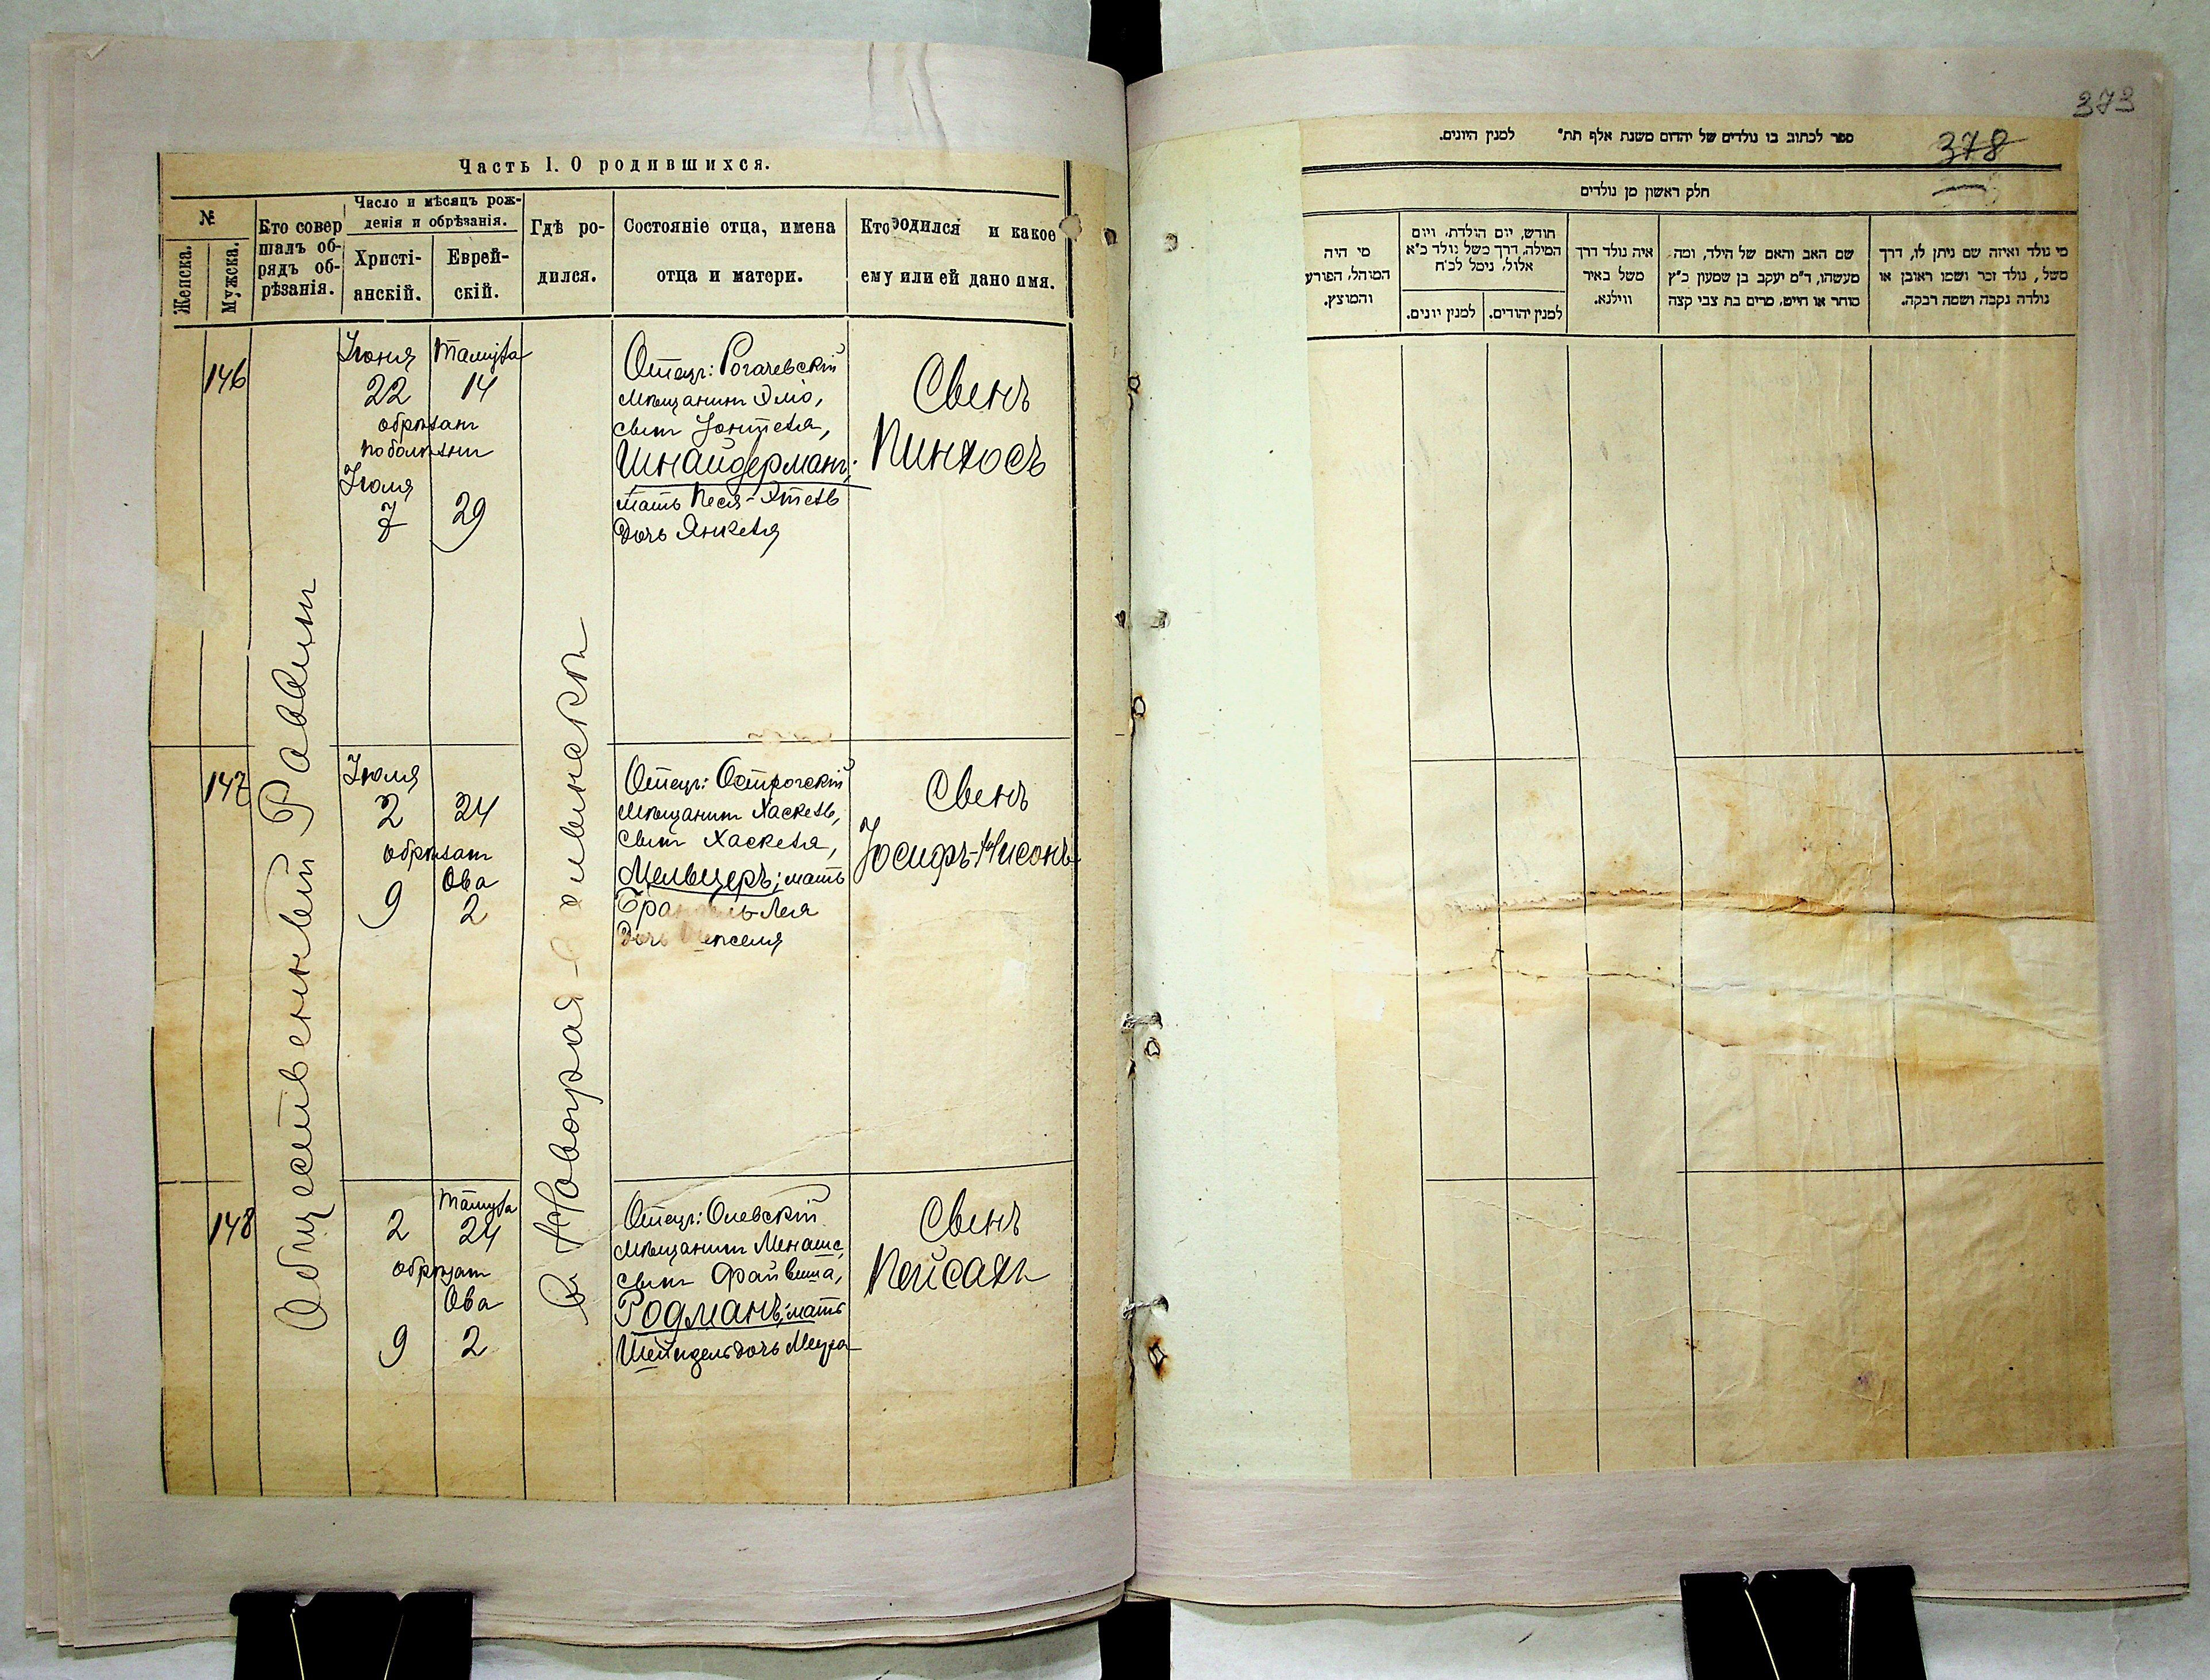 Часть I. О родившихся.
№
Женска.
Мужска.
Кто совер
шалъ об-
рядъ об-
рѣзанія.
Число и мѣсяцъ рож-
денія и обрѣзанія.
Христі-
анскій.
Еврей-
скій.
Гдѣ ро-
дился.
Состояніе отца, имена
отца и матери.
Кто родился и какое
ему или ей дано имя.
Общественный Раввинъ
Новоград-
146
Іюня Тамуза
22 14
обрѣзанъ
по болѣзни
Іюля
7 29
Отецъ: Рогачевскій
мѣщанинъ
сынъ Іонтеля,
Шнайдерманъ;
мать Песя-Этель
дочь Янкеля
Сынъ
Пинхосъ
147
Іюля
2 24
обрѣзанъ
Ова
9 2
Отецъ: Острогскій
мѣщанинъ Хаскель,
сынъ Хаскеля,
Мельцеръ; мать
Лея
дочь
Сынъ
Іосифъ-Нисонъ
148
Тамуза
2 24
обрѣзанъ
Ова
9 2
Отецъ: Олевскій
мѣщанинъ Менаше,
сынъ Файвиша,
Родманъ; мать
Шейндель дочь Меера
Сынъ
Пейсахъ
373
378
ספר לכתוב בו נולדים של יהדום משנת אלף תת" למנין היונים.
חלק ראשון מן נולדים
מי נולד ואיזה שם ניתן לו, דרך
משל, נולד זכר ושמו ראובן או
נולדה נקבה ושמה רבקה.
שם האב והאם של הילד, ומה
מעשהו, ד"מ יעקב בן שמעון כ"ץ
סוחר או חייט, מרים בת צבי קצה
איה נולד דרך
משל באיר
ווילנא.
חודש, יום הולדת, ויום
המילה, דרך משל נולד כ"א
אלול, נימל לכ"ח
למנין יהודים.
למנין יונים.
מי היה
המוהל, הפורע
והמוצץ.